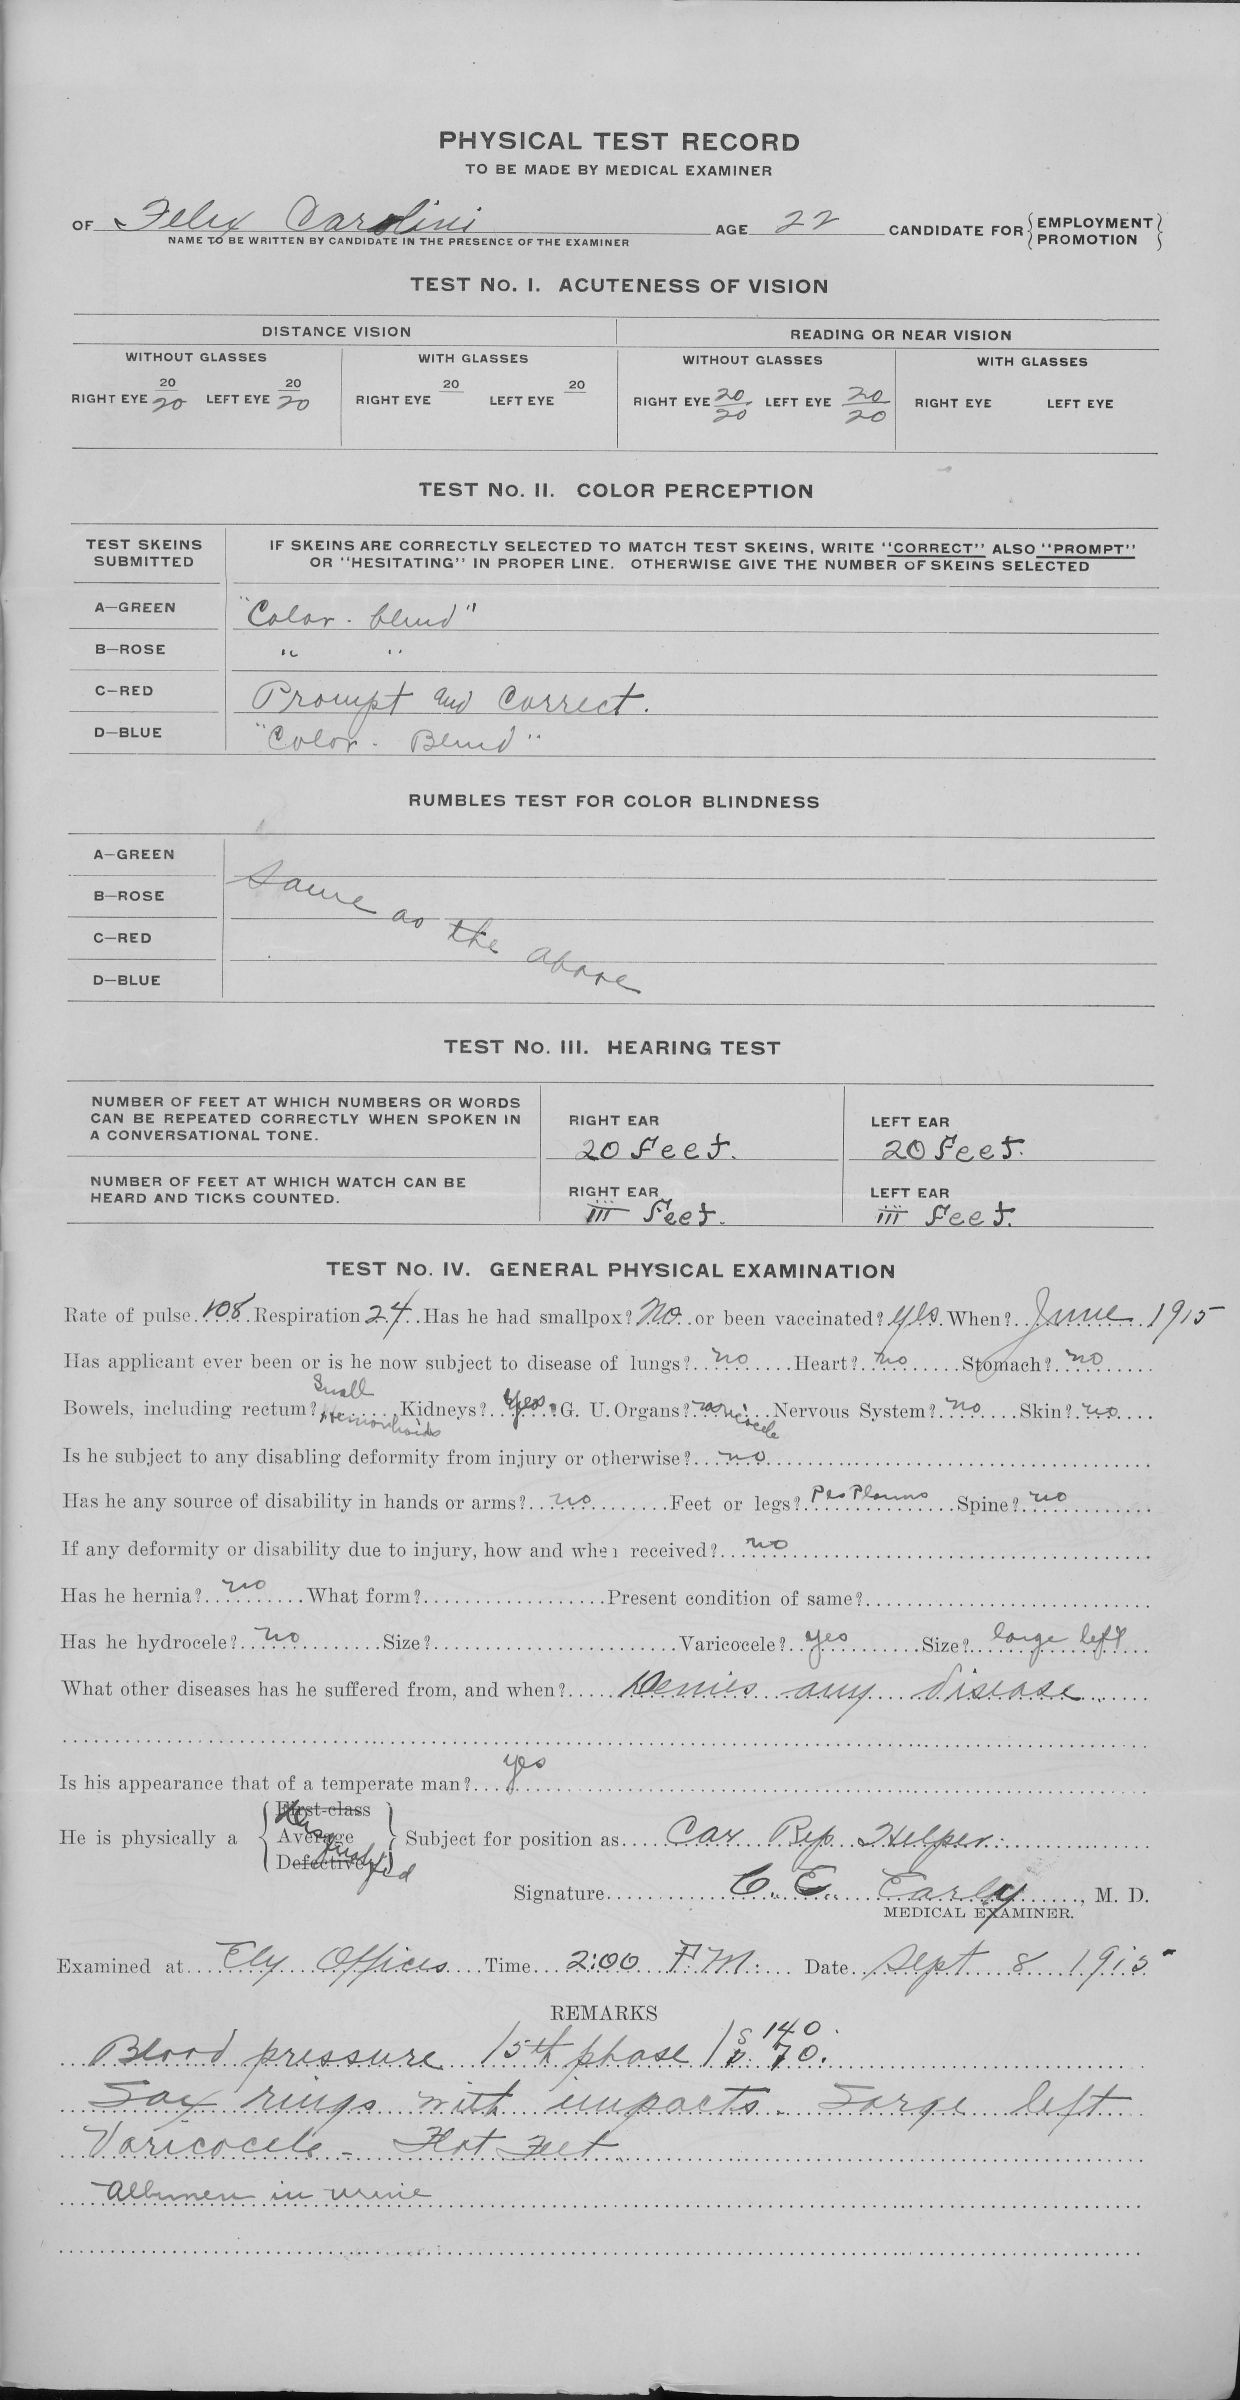 PHYSICAL TEST RECORD
TO BE MADE BY MEDICAL EXAMINER
OF Felix Carolini AGE 22 CANDIDATE FOR {EMPLOYMENT PROMOTION}
NAME TO BE WRITTEN BY CANDIDATE IN THE PRESENCE OF THE EXAMINER
TEST No. I. ACUTENESS OF VISION
DISTANCE VISION READING OR NEAR VISION
WITHOUT GLASSES WITH GLASSES WITHOUT GLASSES WITH GLASSES
RIGHT EYE 20/20 LEFT EYE 20/20 RIGHT EYE 20 LEFT EYE 20 RIGHT EYE 20/20 LEFT EYE 20/20 RIGHT EYE LEFT EYE
TEST No. II. COLOR PERCEPTION
TEST SKEINS SUBMITTED
IF SKEINS ARE CORRECTLY SELECTED TO MATCH TEST SKEINS, WRITE "CORRECT" ALSO "PROMPT"
OR "HESITATING" IN PROPER LINE. OTHERWISE GIVE THE NUMBER OF SKEINS SELECTED
A—GREEN "Color-blind"
B—ROSE " "
C—RED Prompt and Correct.
D—BLUE "Color-Blind"
RUMBLES TEST FOR COLOR BLINDNESS
A—GREEN
B—ROSE
C—RED
D—BLUE
Same as the above
TEST No. III. HEARING TEST
NUMBER OF FEET AT WHICH NUMBERS OR WORDS
CAN BE REPEATED CORRECTLY WHEN SPOKEN IN
A CONVERSATIONAL TONE.
RIGHT EAR 20 Feet. LEFT EAR 20 Feet.
NUMBER OF FEET AT WHICH WATCH CAN BE
HEARD AND TICKS COUNTED.
RIGHT EAR iii Feet. LEFT EAR iii Feet.
TEST No. IV. GENERAL PHYSICAL EXAMINATION
Rate of pulse 108 Respiration 24 Has he had smallpox? No or been vaccinated? yes When? June 1915
Has applicant ever been or is he now subject to disease of lungs? no Heart? no Stomach? no
Bowels, including rectum? Small Hemorrhoids Kidneys? yes G. U. Organs? varicocele Nervous System? no Skin? no
Is he subject to any disabling deformity from injury or otherwise? no
Has he any source of disability in hands or arms? no Feet or legs? Pes Planus Spine? no
If any deformity or disability due to injury, how and when received? no
Has he hernia? no What form? Present condition of same?
Has he hydrocele? no Size? Varicocele? yes Size? large left
What other diseases has he suffered from, and when? Denies any disease
Is his appearance that of a temperate man? yes
He is physically a {First-class Average Defective} Disqualified Subject for position as Car Rep Helper
Signature C. E. Early, M. D.
MEDICAL EXAMINER.
Examined at Ely Offices Time 2:00 P.M. Date Sept 8 1915
REMARKS
Blood pressure 15th phase S 140. D. 70.
Lax rings with impacts. Large left
Varicocele - Flat Feet.
Albumen in urine